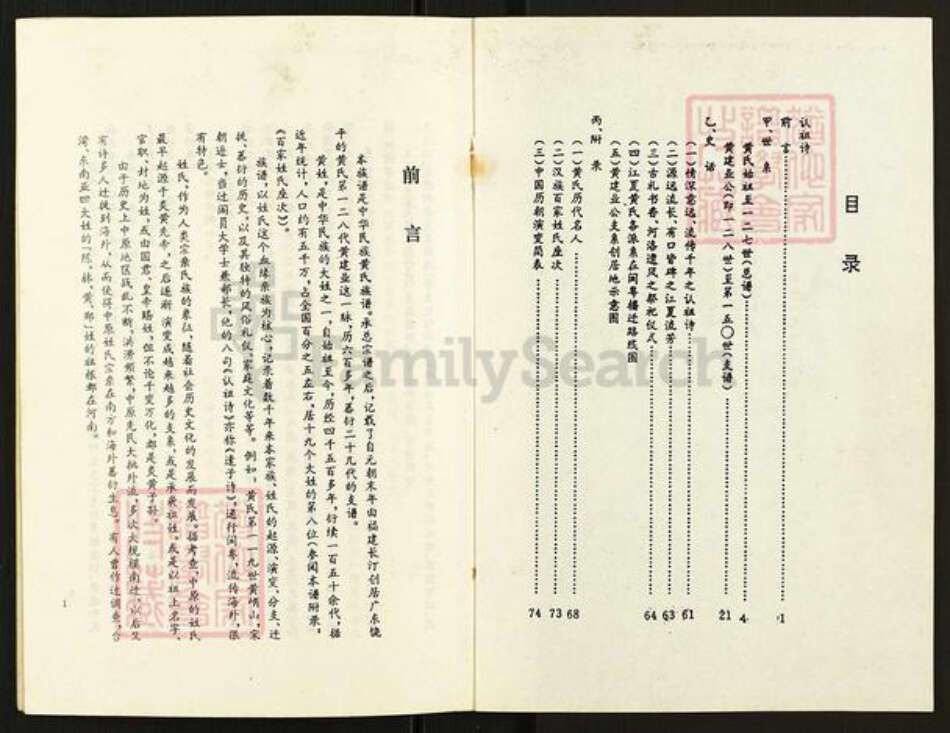 目录
认祖诗
前言……1
甲、世系
黄氏始祖至一二七世(总谱)……4
黄建业公(即一二八世)至第一五〇世(支谱)……21
乙、史话
(一)情深意远、流传千年之认祖诗……61
(二)源远流长、有口皆碑之江夏流芳……63
(三)古礼书香、河洛遗风之祭祀仪式……64
(四)江夏黄氏各派系在闽粤播迁路线图
(五)黄建业公支系创居地示意图
丙、附录
(一)黄氏历代名人……68
(二)汉族百家姓氏座次……73
(三)中国历朝演变简表……74
前言
本族谱是中华民族黄氏族谱。承总宗谱之后,记载了自元朝末年由福建长汀创居广东饶
平的黄氏第一二八代黄建业这一脉,历六百多年,蕃衍二十几代的支谱。
黄姓,是中华民族的大姓之一,自始祖至今,历经四千五百多年,衍续一百五十余代,据
近年统计,人口约有五千万,占全国百分之五左右,居十九个大姓的第八位(参阅本谱附录,
《百家姓氏座次》)。
族谱,以姓氏这个血缘亲族为核心,记录着数千年来本家族、姓氏的起源、演变、分支、迁
徙、蕃衍的历史,以及其独特的风俗礼仪、家庭文化等等。例如,黄氏第一一九世黄峭山,宋
朝进士,当过闽员大学士兼部长,他的八句《认祖诗》亦称《遣子诗》,遍行闽粤、流传海外,很
有特色。
姓氏,作为人类宗亲氏族的象征,随着社会历史文化的发展而发展。据考查,中原的姓氏
最早起源于炎黄先帝,之后逐渐演变成越来越多的支系,或是承袭祖姓,或是以祖上名字、
官职、封地为姓,或由国君、皇帝赐姓,但不论千变万化,都是炎黄子孙。
由于历史上中原地区战乱不断,洪涝频繁,中原先民大批外流,多次大规模南迁,以后又
有许多人迁徙到海外,从而使得中原姓氏宗亲在南方和海外蕃衍生息。有人曾作过调查,台
湾、东南亚四大姓的“陈、林、黄、郑”姓的祖根都在河南。
1
FamilySearch